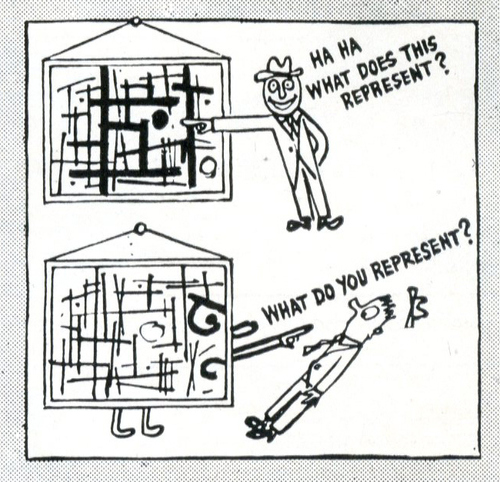 HA HA
WHAT DOES THIS
REPRESENT?
WHAT DO YOU REPRESENT?